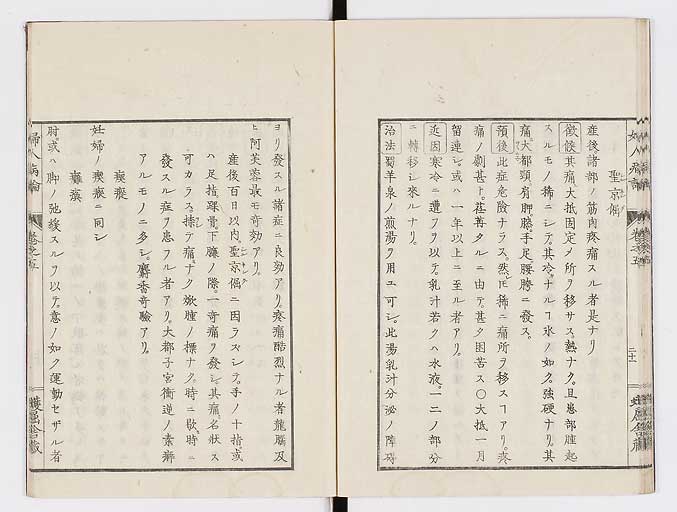 聖京偈
産後諸部ノ筋肉疼痛スル者是ナリ
徴候其痛大抵固定メ所ヲ移サス。熱ナク。且患部腫起
スルモノ稀ニシテ。其冷ナルヿ氷ノ如ク。強硬ナリ。其
痛大都頸肩胛膝手足腰髀ニ發ス。
預後此症危險ナラス。然𪜈稀ニ痛所ヲ移スヿアリ。疼
痛ノ劇甚ト。荏苒タルニ由テ。甚タ困苦ス○大抵一月
留連シ。或ハ一年以上ニ至ル者アリ。
近因寒冷ニ遭フヲ以テ。乳汁若クハ水液。一二ノ部分
ニ轉移シ來ルナリ。
治法蜀羊泉ノ煎湯ヲ用ユ可シ。此湯乳汁分泌ノ障碍
婦人病論
卷之五
二十
蠖屈舎藏
ヨリ發スル諸症ニ良効アリ。疼痛酷烈ナル者龍腦及
ヒ阿芙蓉最モ奇効アリ。
産後百日以内。聖京偈ニ因ラスシテ。手ノ十指。或
ハ足指踝骨下臁ノ際。一奇痛ヲ發シ。其痛。名状ス
可カラス。揉テ痛ナク。焮腫ノ標ナク。時ニ歇。時ニ
發スル症ヲ患フル者アリ。大都子宮衝逆ノ素癖
アルモノニ多シ。麝香奇驗アリ。
瘈瘲
妊婦ノ瘈瘲ニ同シ
癱瘓
肘。或ハ脚ノ弛緩スルヲ以テ。意ノ如ク運動セサル者
婦人病論
卷之五
蠖屈舎藏